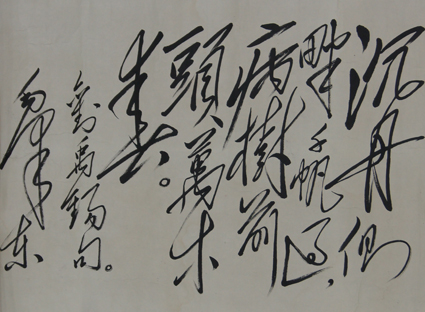 沉舟侧
畔千帆过，
病樹前
頭萬木
春。
劉禹錫句。
毛澤东